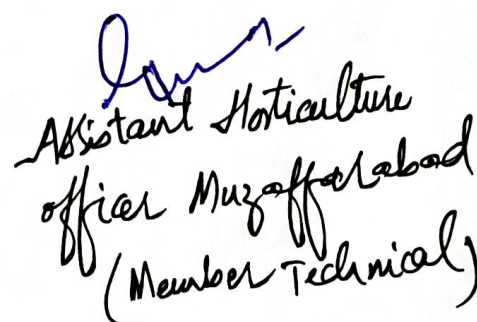 Assistant Horticulture
officer Muzaffarabad
(Member Technical)